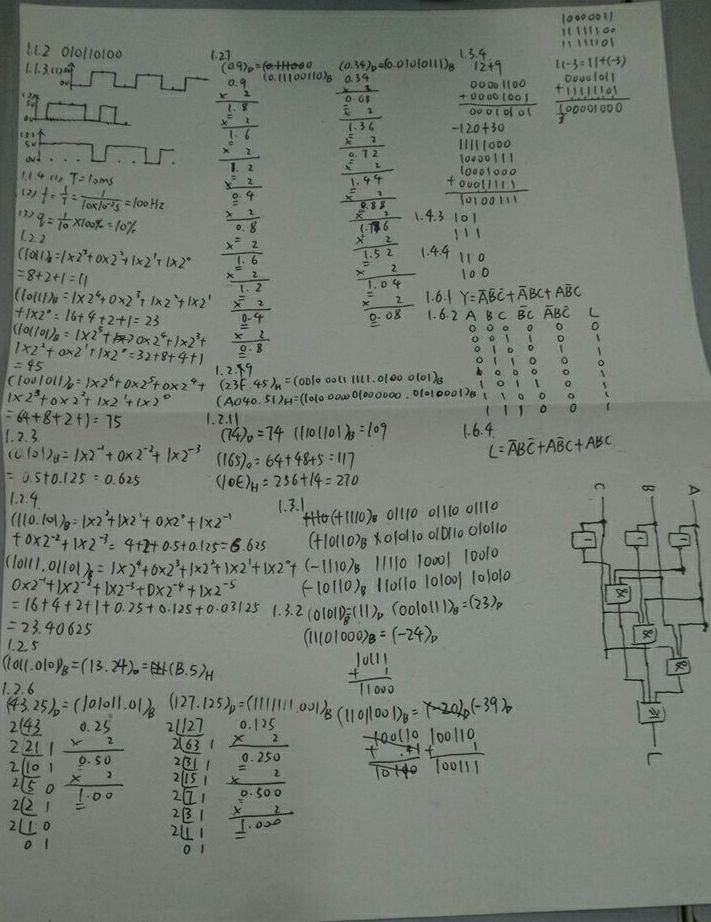 1.1.2 010110100
1.1.3 (1)
0V
5V
0V
5V
0V
1.1.4 (1) T=10ms
(2) f=1/T=1/(10×10⁻³s)=100Hz
(3) q=1/10×100%=10%
1.2.2
(1011)B=1×2³+0×2²+1×2¹+1×2⁰
=8+2+1=11
(10111)B=1×2⁴+0×2³+1×2²+1×2¹
+1×2⁰=16+4+2+1=23
(101101)B=1×2⁵+0×2⁴+1×2³+
1×2²+0×2¹+1×2⁰=32+8+4+1
=45
(1001011)B=1×2⁶+0×2⁵+0×2⁴+
1×2³+0×2²+1×2¹+1×2⁰
=64+8+2+1=75
1.2.3
(0.101)B=1×2⁻¹+0×2⁻²+1×2⁻³
=0.5+0.125=0.625
1.2.4
(110.101)B=1×2²+1×2¹+0×2⁰+1×2⁻¹
+0×2⁻²+1×2⁻³=4+2+0.5+0.125=6.625
(10111.01101)B=1×2⁴+0×2³+1×2²+1×2¹+1×2⁰+
0×2⁻¹+1×2⁻²+1×2⁻³+0×2⁻⁴+1×2⁻⁵
=16+4+2+1+0.25+0.125+0.03125
=23.40625
1.2.5
(1011.0101)B=(13.24)O=(B.5)H
1.2.6
(43.25)D=(101011.01)B (127.125)D=(1111111.001)B
2 43
2 21 1
2 10 1
2 5 0
2 2 1
2 1 0
0 1
0.25
× 2
0.50
× 2
1.00
2 127
2 63 1
2 31 1
2 15 1
2 7 1
2 3 1
2 1 1
0 1
0.125
× 2
0.250
× 2
0.500
× 2
1.000
1.2.7
(0.9)D=
(0.11100110)B
0.9
× 2
1.8
× 2
1.6
× 2
1.2
× 2
0.4
× 2
0.8
× 2
1.6
× 2
1.2
× 2
0.4
× 2
0.8
(0.34)D=(0.01010111)B
0.34
× 2
0.68
× 2
1.36
× 2
0.72
× 2
1.44
× 2
0.88
× 2
1.76
× 2
1.52
× 2
1.04
× 2
0.08
1.2.9
(23F.45)H=(0010 0011 1111.0100 0101)B
(A040.51)H=(1010 0000 0100 0000.01010001)B
1.2.11
(74)D=74 (1101101)B=109
(165)O=64+48+5=117
(10E)H=256+14=270
1.3.1
(+1110)B 01110 01110 01110
(+10110)B 010110 010110 010110
(-1110)B 11110 10001 10010
(-10110)B 110110 101001 101010
1.3.2 (01011)B=(11)D (0010111)B=(23)D
(11101000)B=(-24)D
10111
+ 1
11000
(11011001)B=(-39)D
100110
+ 1
100111
1.3.4
12+9
00001100
+00001001
00010101
-120+30
11111000
10000111
10001000
+00011111
10100111
1.4.3 101
111
1.4.4 110
100
10000011
11111100
11111101
11-3=11+(-3)
00001011
+11111101
100001000
1.6.1 Y=A̅B̅C̅+A̅BC+AB̅C
1.6.2 A B C B̅C A̅B̅C L
1.6.4
L=A̅BC̅+AB̅C̅+ABC
C B A
1 1 1
&
&
&
≥1
L